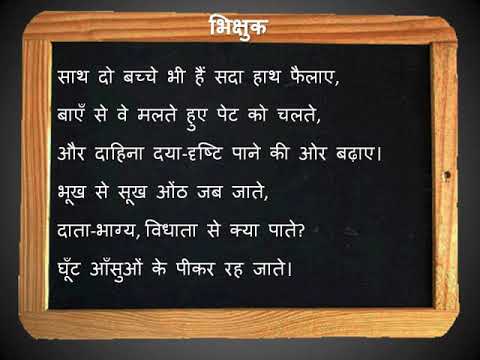 भिक्षुक
साथ दो बच्चे भी हैं सदा हाथ फैलाए,
बाएँ से वे मलते हुए पेट को चलते,
और दाहिना दया-दृष्टि पाने की ओर बढ़ाए।
भूख से सूख ओंठ जब जाते,
दाता-भाग्य, विधाता से क्या पाते?
घूँट आँसुओं के पीकर रह जाते।